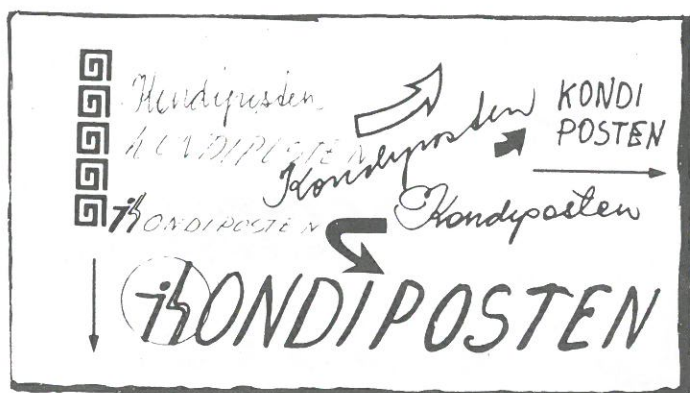 Kondiposten
KONDIPOSTEN
Kondiposten
KONDI
POSTEN
KONDIPOSTEN
Kondiposten
KONDIPOSTEN